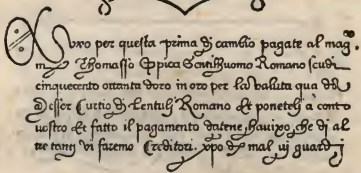 per questa prima di cambio pagate al mag.co
m. Thomasso Oppica Gentilhuomo Romano scudi
cinquecento ottanta doro in oro per la valuta qua da
Messer Curtio de Lentuli Romano et ponetelj à conto
vostro et fatto il pagamento datene havixo, che di al
tre tantj vi faremo Creditori. xpo de mal vi guardj